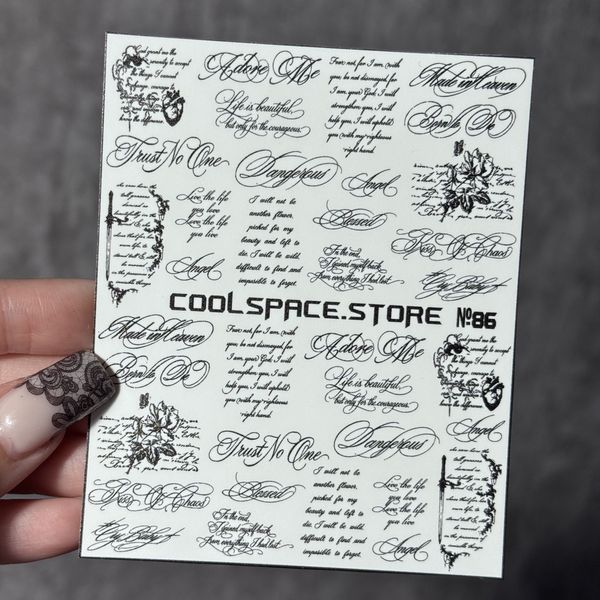 God grant me the
serenity to accept
the things I cannot
the difference
Adore Me
Life is beautiful,
but only for the courageous.
Fear not, for I am with
you; be not dismayed, for
I am your God. I will
strengthen you, I will
help you, I will uphold
you with my righteous
right hand.
Made in Heaven
Born to Die
Trust No One
Dangerous
Angel
Live the life
you live
Live the life
you live
I will not be
another flower,
picked for my
beauty and left to
die. I will be wild,
difficult to find and
impossible to forget.
Blessed
Kiss Of Chaos
Angel
In the end,
I gained myself back
From everything I had lost
Cry Baby
COOLSPACE.STORE №86
Made in Heaven
Born to Die
Fear not, for I am with
you; be not dismayed, for
I am your God. I will
strengthen you, I will
help you, I will uphold
you with my righteous
right hand.
Adore Me
Life is beautiful,
but only for the courageous.
God grant me the
serenity to accept
the things I cannot
the difference
Angel
Trust No One
Dangerous
Kiss Of Chaos
Blessed
I will not be
another flower,
picked for my
beauty and left to
die. I will be wild,
difficult to find and
impossible to forget.
Live the life
you live
Live the life
you live
Cry Baby
In the end,
I gained myself back
From everything I had lost
Angel